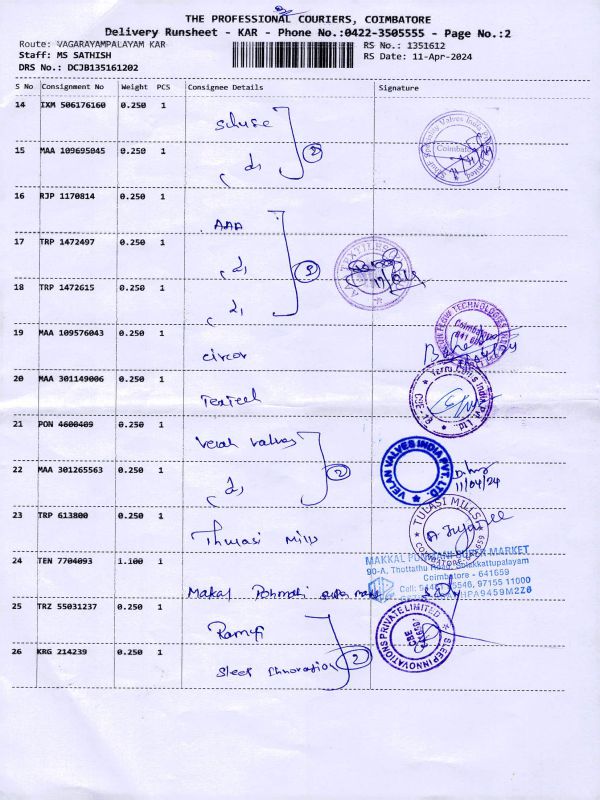 THE PROFESSIONAL COURIERS, COIMBATORE
Delivery Runsheet - KAR - Phone No.:0422-3505555 - Page No.:2
Route: VAGARAYAMPALAYAM KAR
RS No.: 1351612
Staff: MS SATHISH
RS Date: 11-Apr-2024
DRS No.: DCJB135161202
S No Consignment No Weight PCS Consignee Details Signature
14 IXM 506176160 0.250 1
2
15 MAA 109695045 0.250 1
16 RJP 1170814 0.250 1
AAA
17 TRP 1472497 0.250 1
3
18 TRP 1472615 0.250 1
19 MAA 109576043 0.250 1
circor
20 MAA 301149006 0.250 1
Texteel
21 PON 4600409 0.250 1
Velan Valves
VELAN VALVES INDIA PVT. LTD.
2
11/04/24
22 MAA 301265563 0.250 1
23 TRP 613800 0.250 1
Thulasi Mills
TULASI MILLS
24 TEN 7704093 1.100 1
MAKKAL SUPER MARKET
90-A, Thottathu Road,
Coimbatore - 641659
97155 11000
Makal Ponmati super
25 TRZ 55031237 0.250 1
SLEEP INNOVATIONS PRIVATE LIMITED
CBE
2
26 KRG 214239 0.250 1
Sleep Innovation